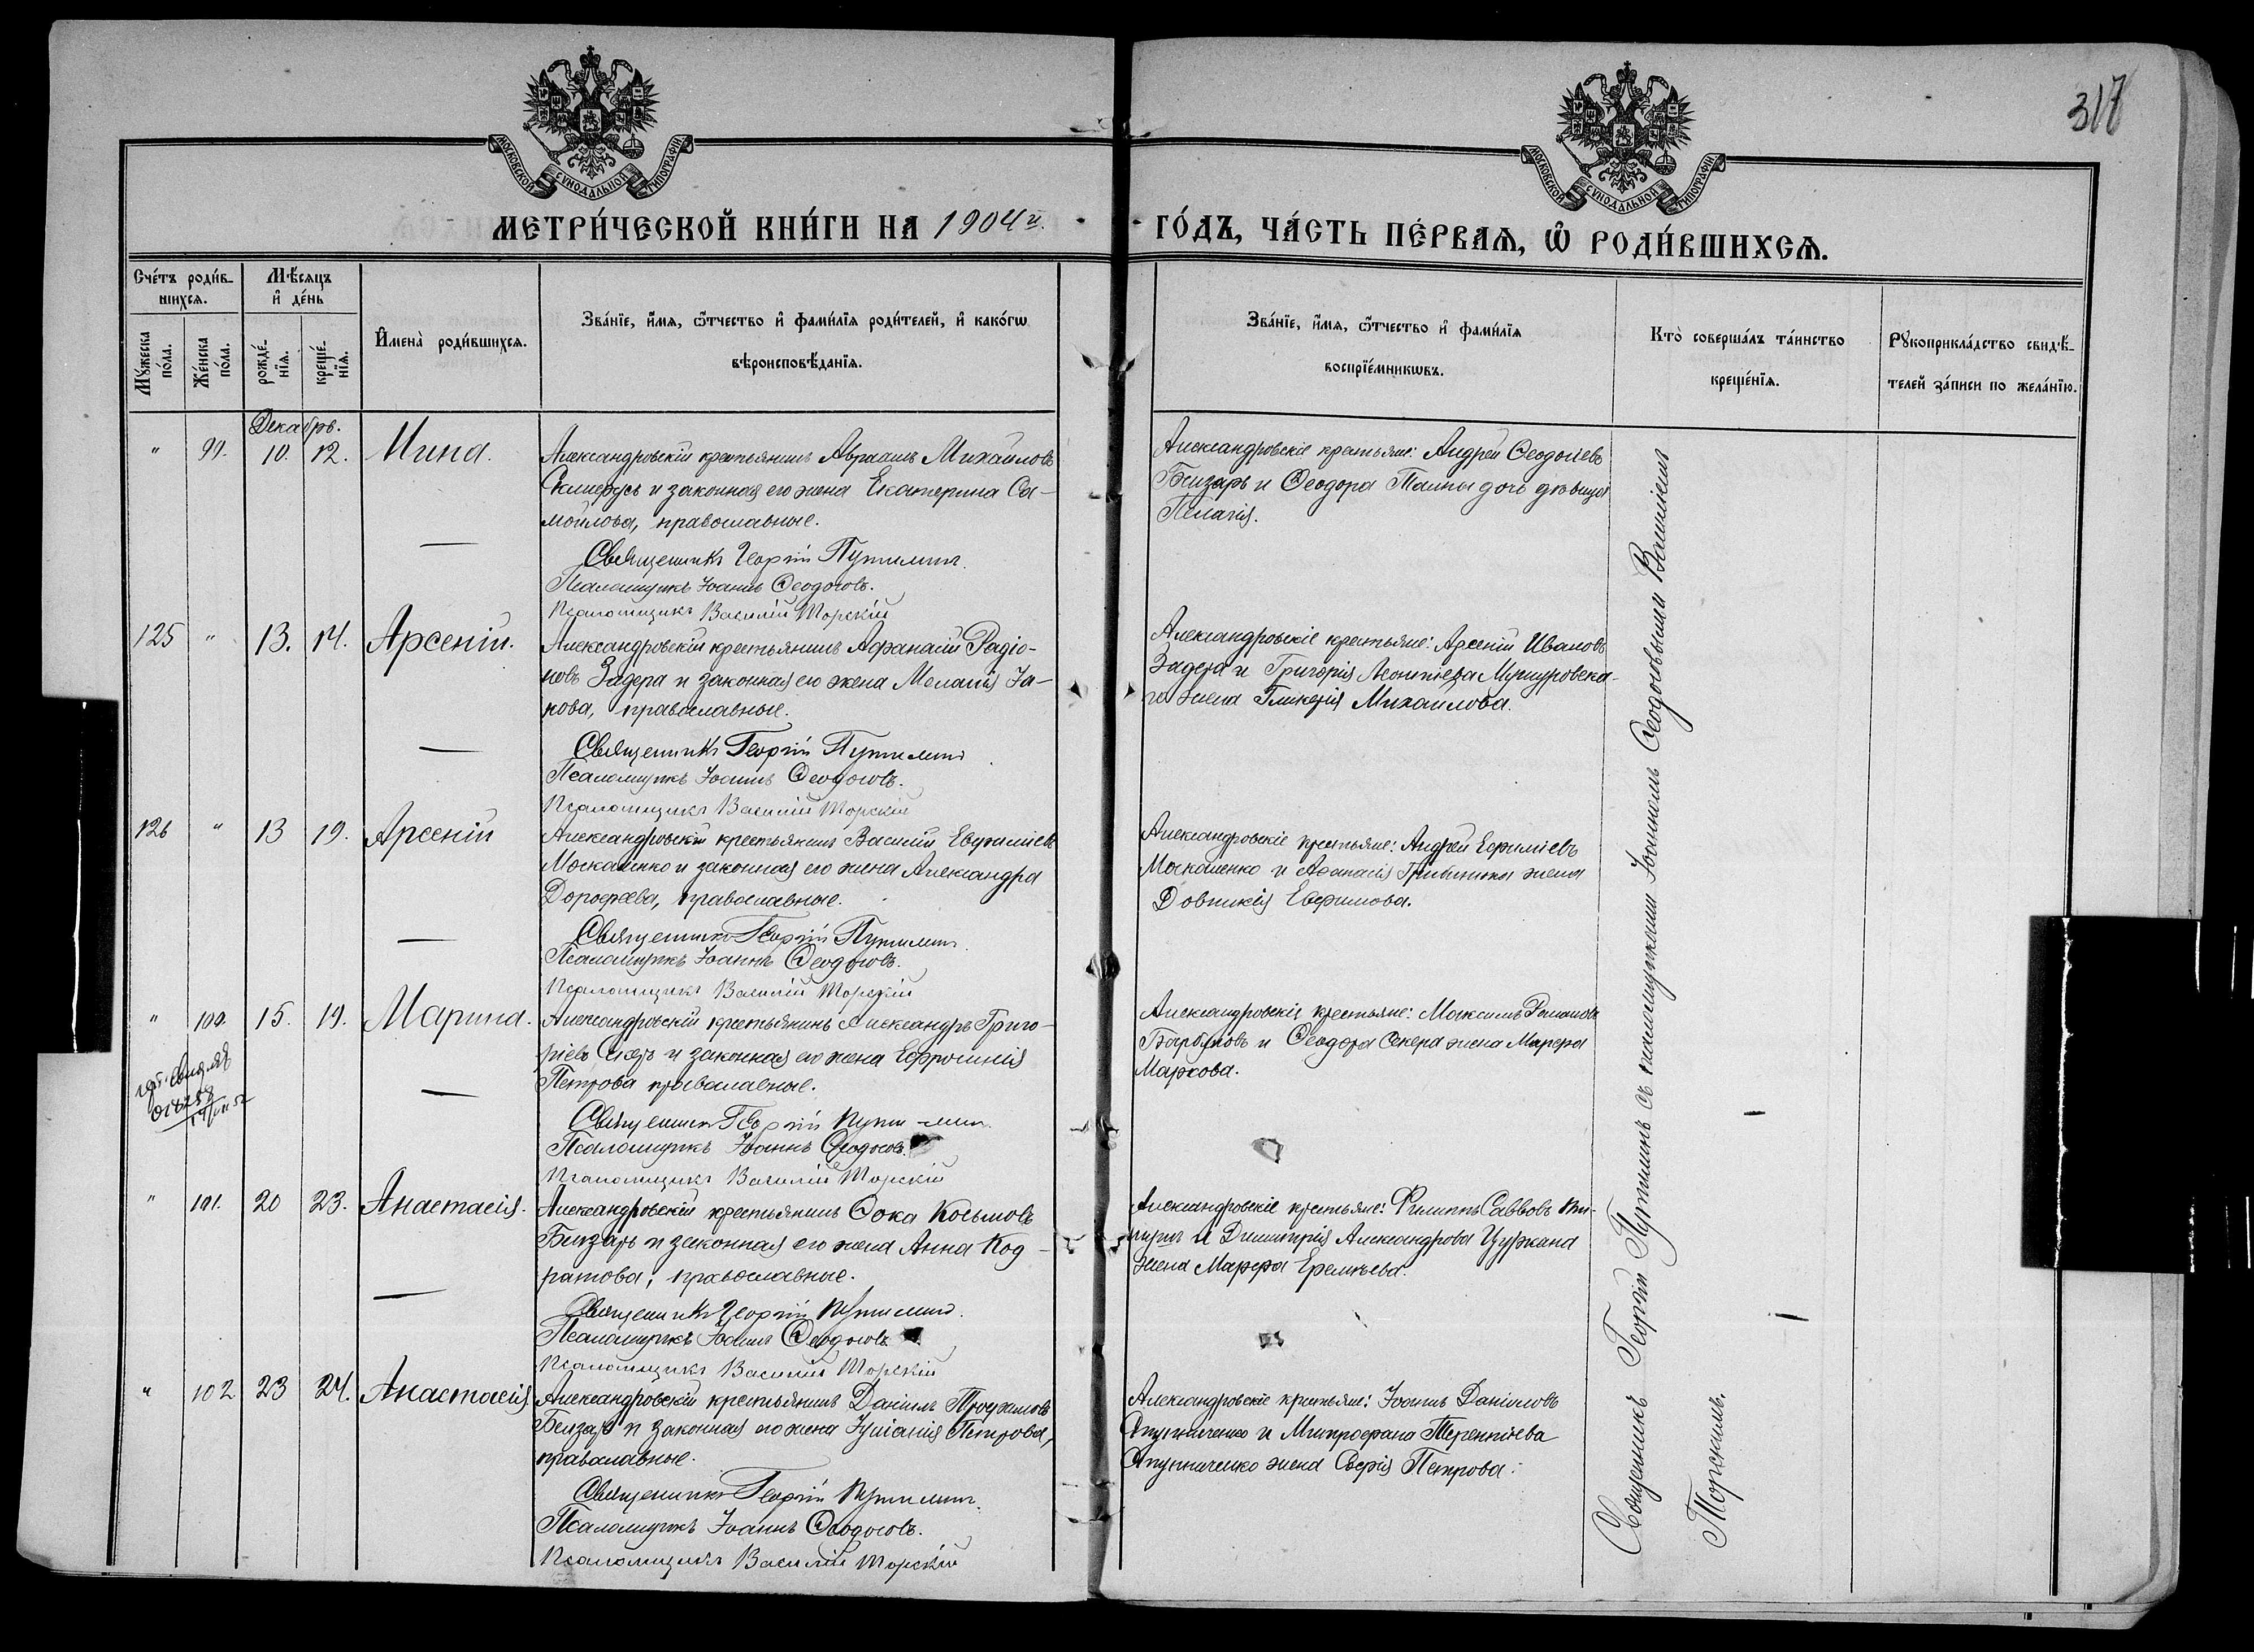 317
МОСКОВСКОЙ СУНОДАЛЬНОЙ ТИПОГРАФІИ
МОСКОВСКОЙ СУНОДАЛЬНОЙ ТИПОГРАФІИ
МЕТРИ́ЧЕСКОЙ КНИ́ГИ НА 1904й.
ГО́ДЪ, ЧА́СТЬ ПЕ́РВАѦ, Ѡ҆ РОДИ́ВШИХСѦ.
Сче́тъ роди́в-
шихсѧ.
Мꙋ́жеска по́ла.
Же́нска по́ла.
Мѣ́сяцъ и҆ де́нь
рожде́-нїѧ.
креще́-нїѧ.
И҆мена̀ роди́вшихсѧ.
Зва́нїе, и҆́мѧ, ѻ҆́тчество и҆ фами́лїѧ роди́телей, и҆ како́гѡ
вѣроисповѣ́данїѧ.
Зва́нїе, и҆́мѧ, ѻ҆́тчество и҆ фами́лїѧ
воспрїе́мникѡвъ.
Кто̀ соверша́лъ та́инство
креще́нїѧ.
Рꙋкоприкла́дство свидѣ́-
телей за́писи по жела́нїю.
Декабрь.
" 99. 10. 12. Мина.
Александровскій крестьянинъ Авраамъ Михайловъ
и законная его жена Екатерина Са-
мойлова, православные.
Священникъ Георгій Путилинъ.
Псаломщикъ Іоаннъ Ѳеодосовъ.
Псаломщикъ Василій Торскій
Александровскіе крестьяне: Андрей Ѳеодосіевъ
Бензарь и Ѳеодора дочь дѣвица
Пелагія.
125 " 13. 14. Арсеній.
Александровскій крестьянинъ Аѳанасій Радіо-
новъ Задера и законная его жена Меланія Іа-
кова, православные.
Священникъ Георгій Путилинъ
Псаломщикъ Іоаннъ Ѳеодосовъ.
Псаломщикъ Василій Торскій
Александровскіе крестьяне: Арсеній Ивановъ
Задера и Григорія Леонтіева
го жена Гликерія Михайлова.
126 " 13 19. Арсеній
Александровскій крестьянинъ Василій Евфиміевъ
Москаленко и законная его жена Александра
Дорофеева, православные.
Священникъ Георгій Путилинъ.
Псаломщикъ Іоаннъ Ѳеодосовъ.
Псаломщикъ Василій Торскій
Александровскіе крестьяне: Андрей Ефиміевъ
Москаленко и Аѳанасія жена
Довникія Евфимова.
" 100. 15. 19. Марина.
Александровскій крестьянинъ Александръ Григо-
ріевъ и законная его жена Ефросинія
Петрова православные.
Священникъ Георгій Путилинъ.
Псаломщикъ Іоаннъ Ѳеодосовъ.
Псаломщикъ Василій Торскій
Александровскіе крестьяне: Максимъ Романовъ
и Ѳеодора Секера жена Марѳа
Маркова.
" 101. 20 23. Анастасія.
Александровскій крестьянинъ Ѳока Косьмовъ
Бензарь и законная его жена Анна Код-
ратова, православные.
Священникъ Георгій Путилинъ.
Псаломщикъ Іоаннъ Ѳеодосовъ.
Псаломщикъ Василій Торскій
Александровскіе крестьяне: Филиппъ Саввовъ
и Димитрія Александрова Цуркана
жена Марѳа Еремѣева.
" 102 23 24. Анастасія.
Александровскій крестьянинъ Даніилъ Трофимовъ
Бензарь и законная его жена Іуліанія Петрова,
православные.
Священникъ Георгій Путилинъ.
Псаломщикъ Іоаннъ Ѳеодосовъ.
Псаломщикъ Василій Торскій
Александровскіе крестьяне: Іоаннъ Даніиловъ
Спутниченко и Митрофана Терентіева
Спутниченко жена Софія Петрова.
Священникъ Георгій Путилинъ съ псаломщиками Іоанномъ Ѳеодосовымъ и Василіемъ
Торскимъ.